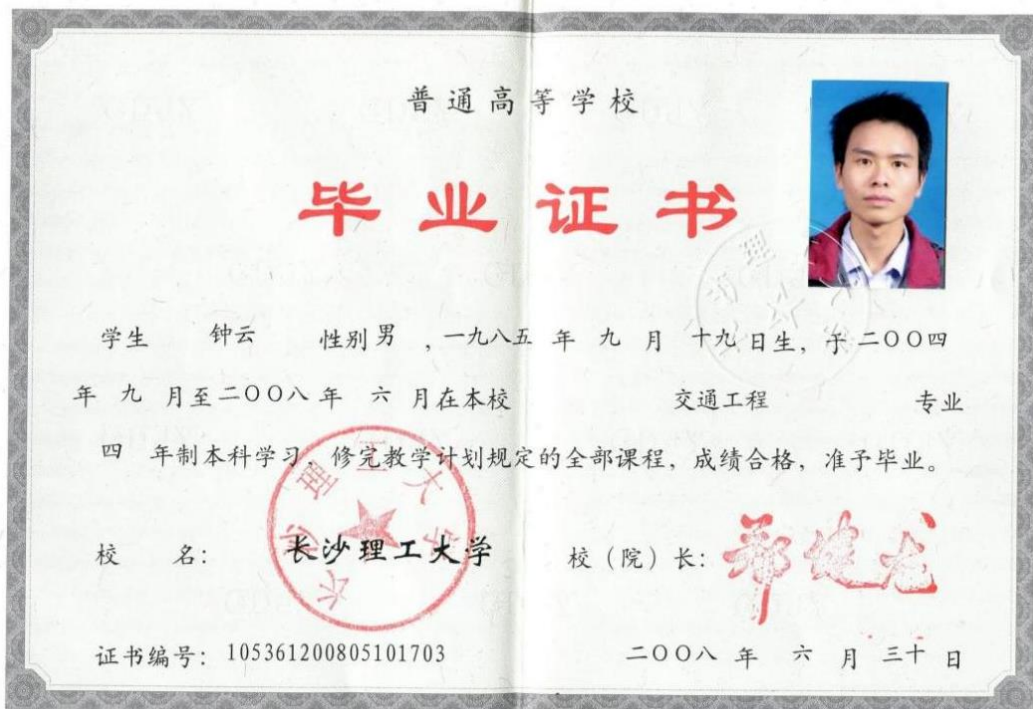 普通高等学校
毕业证书
学生 钟云 性别 男 ,一九八五 年 九 月 十九 日生,于 二〇〇四
年 九 月至 二〇〇八 年 六 月在本校 交通工程 专业
四 年制本科学习,修完教学计划规定的全部课程,成绩合格,准予毕业。
校 名: 长沙理工大学 校(院)长: 郑健龙
长沙理工大学
证书编号: 105361200805101703 二〇〇八 年 六 月 三十 日